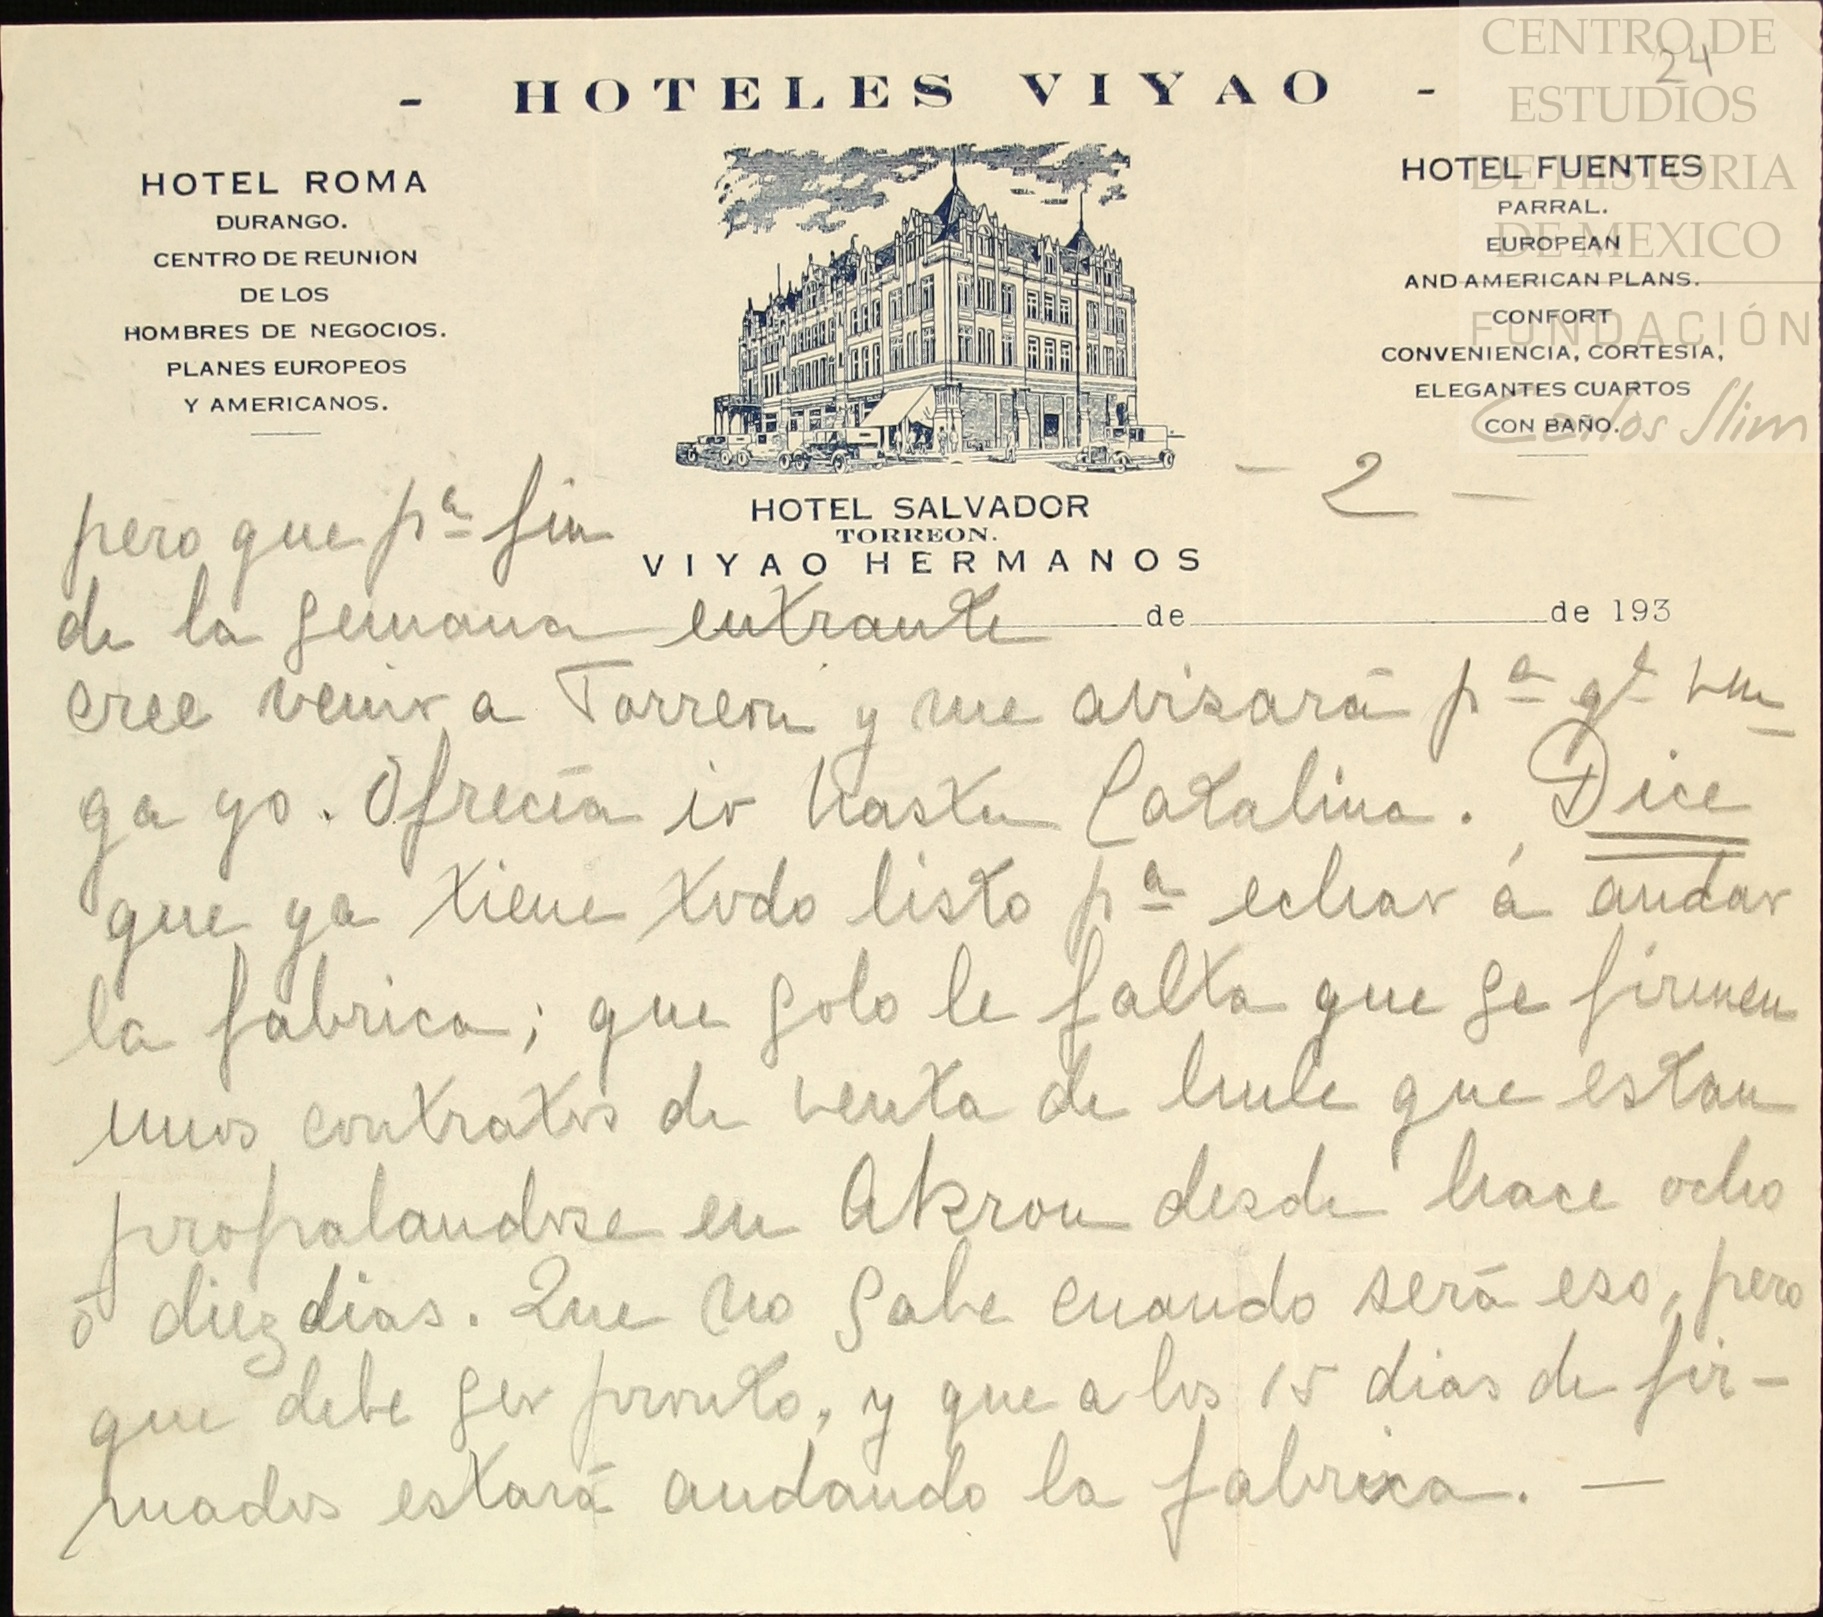 CENTRO DE
24
ESTUDIOS
DE HISTORIA
DE MEXICO
FUNDACIÓN
Carlos Slim
- HOTELES VIYAO -
HOTEL ROMA
DURANGO.
CENTRO DE REUNION
DE LOS
HOMBRES DE NEGOCIOS.
PLANES EUROPEOS
Y AMERICANOS.
HOTEL FUENTES
PARRAL.
EUROPEAN
AND AMERICAN PLANS.
CONFORT
CONVENIENCIA, CORTESIA,
ELEGANTES CUARTOS
CON BAÑO.
HOTEL SALVADOR
TORREON.
VIYAO HERMANOS
de de 193
- 2 -
pero que pª fin
de la semana entrante
cree venir a Torreon y me avisará pª qᵉ ven
ga yo. Ofrecía ir hasta Catalina. Dice
que ya tiene todo listo pª echar á andar
la fabrica; que solo le falta que se firmen
unos contratos de venta de hule que estan
propalandose en Akron desde hace ocho
ó diez dias. Que no sabe cuando será eso, pero
que debe ser pronto, y que a los 15 dias de fir-
mados estará andando la fabrica. —